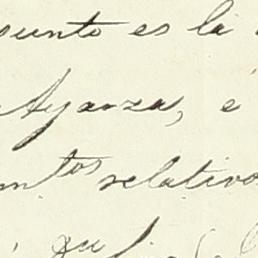 sunto es la
Ayarza, é
ntos relativos